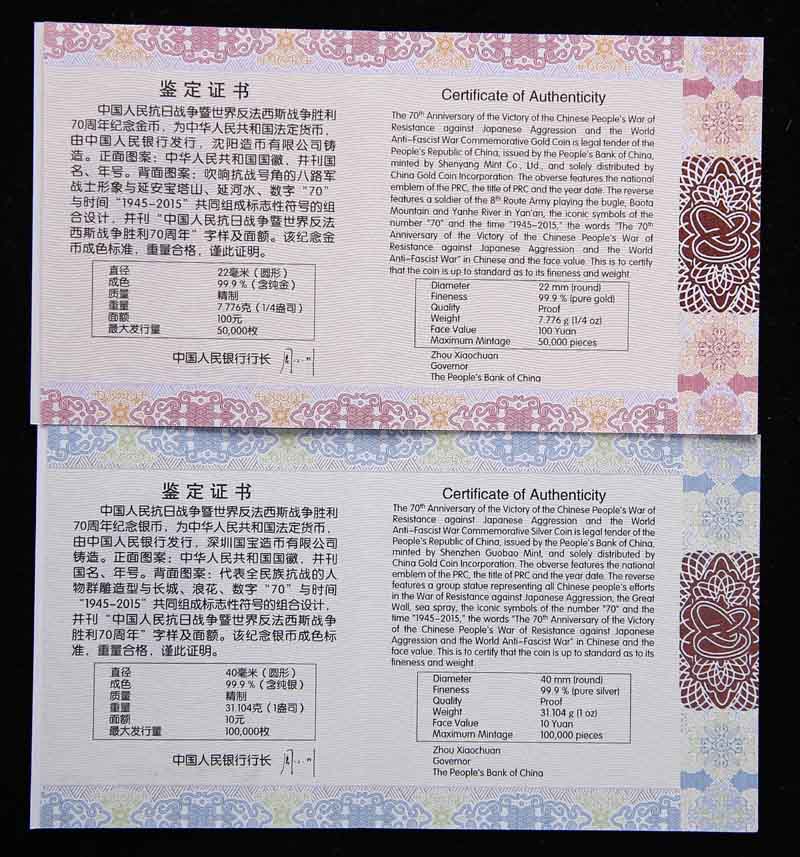 鉴定证书
中国人民抗日战争暨世界反法西斯战争胜利
70周年纪念金币，为中华人民共和国法定货币，
由中国人民银行发行，沈阳造币有限公司铸
造。正面图案：中华人民共和国国徽，并刊国
名、年号。背面图案：吹响抗战号角的八路军
战士形象与延安宝塔山、延河水、数字“70”
与时间“1945-2015”共同组成标志性符号的组
合设计，并刊“中国人民抗日战争暨世界反法
西斯战争胜利70周年”字样及面额。该纪念金
币成色标准，重量合格，谨此证明。
直径 22毫米（圆形）
成色 99.9%（含纯金）
质量 精制
重量 7.776克（1/4盎司）
面额 100元
最大发行量 50,000枚
中国人民银行行长
Certificate of Authenticity
The 70th Anniversary of the Victory of the Chinese People's War of
Resistance against Japanese Aggression and the World
Anti-Fascist War Commemorative Gold Coin is legal tender of the
People's Republic of China, issued by the People's Bank of China,
minted by Shenyang Mint Co., Ltd., and solely distributed by
China Gold Coin Incorporation. The obverse features the national
emblem of the PRC, the title of PRC and the year date. The reverse
features a soldier of the 8th Route Army playing the bugle, Baota
Mountain and Yanhe River in Yan'an, the iconic symbols of the
number "70" and the time "1945-2015," the words "The 70th
Anniversary of the Victory of the Chinese People's War of
Resistance against Japanese Aggression and the World
Anti-Fascist War" in Chinese and the face value. This is to certify
that the coin is up to standard as to its fineness and weight.
Diameter 22 mm (round)
Fineness 99.9 % (pure gold)
Quality Proof
Weight 7.776 g (1/4 oz)
Face Value 100 Yuan
Maximum Mintage 50,000 pieces
Zhou Xiaochuan
Governor
The People's Bank of China
鉴定证书
中国人民抗日战争暨世界反法西斯战争胜利
70周年纪念银币，为中华人民共和国法定货币，
由中国人民银行发行，深圳国宝造币有限公司
铸造。正面图案：中华人民共和国国徽，并刊
国名、年号。背面图案：代表全民族抗战的人
物群雕造型与长城、浪花、数字“70”与时间
“1945-2015”共同组成标志性符号的组合设计，
并刊“中国人民抗日战争暨世界反法西斯战争
胜利70周年”字样及面额。该纪念银币成色标
准，重量合格，谨此证明。
直径 40毫米（圆形）
成色 99.9%（含纯银）
质量 精制
重量 31.104克（1盎司）
面额 10元
最大发行量 100,000枚
中国人民银行行长
Certificate of Authenticity
The 70th Anniversary of the Victory of the Chinese People's War of
Resistance against Japanese Aggression and the World
Anti-Fascist War Commemorative Silver Coin is legal tender of the
People's Republic of China, issued by the People's Bank of China,
minted by Shenzhen Guobao Mint, and solely distributed by
China Gold Coin Incorporation. The obverse features the national
emblem of the PRC, the title of PRC and the year date. The reverse
features a group statue representing all Chinese people's efforts
in the War of Resistance against Japanese Aggression, the Great
Wall, sea spray, the iconic symbols of the number "70" and the
time "1945-2015," the words "The 70th Anniversary of the Victory
of the Chinese People's War of Resistance against Japanese
Aggression and the World Anti-Fascist War" in Chinese and the
face value. This is to certify that the coin is up to standard as to its
fineness and weight.
Diameter 40 mm (round)
Fineness 99.9 % (pure silver)
Quality Proof
Weight 31.104 g (1 oz)
Face Value 10 Yuan
Maximum Mintage 100,000 pieces
Zhou Xiaochuan
Governor
The People's Bank of China